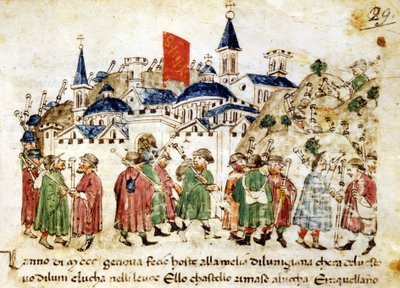 29.
Lanno di MCCC genova fecie hoste alla melia dilunigiana chera delvesco
vo diluni elucha nelli Ello chastello rimase alucha quellano